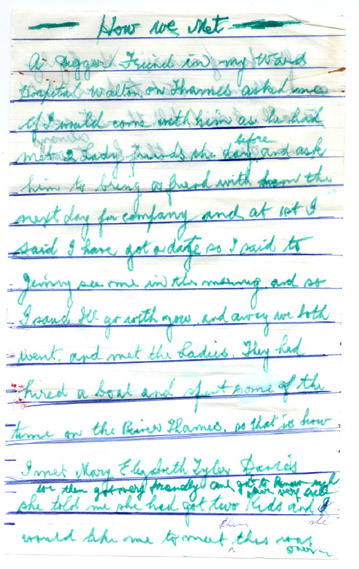 How we Met
A Digger Friend in my Ward
Hospital Walton on Thames asked me
if I would come with him as he had
met 2 Lady friends the day before and ask
him to bring a friend with him the
next day for company and at 1st I
said I have got a date so I said to
Jimmy see me in the morning and so
I said I'll go with you, and away we both
went. and met the Ladies. They had
hired a boat and spent some of the
time on the River Thames. so that is how
I met Mary Elizabeth Tyler Davies
we then got very friendly and got to know each
she told me she had got two Kids and she
would like me to meet them this was
over